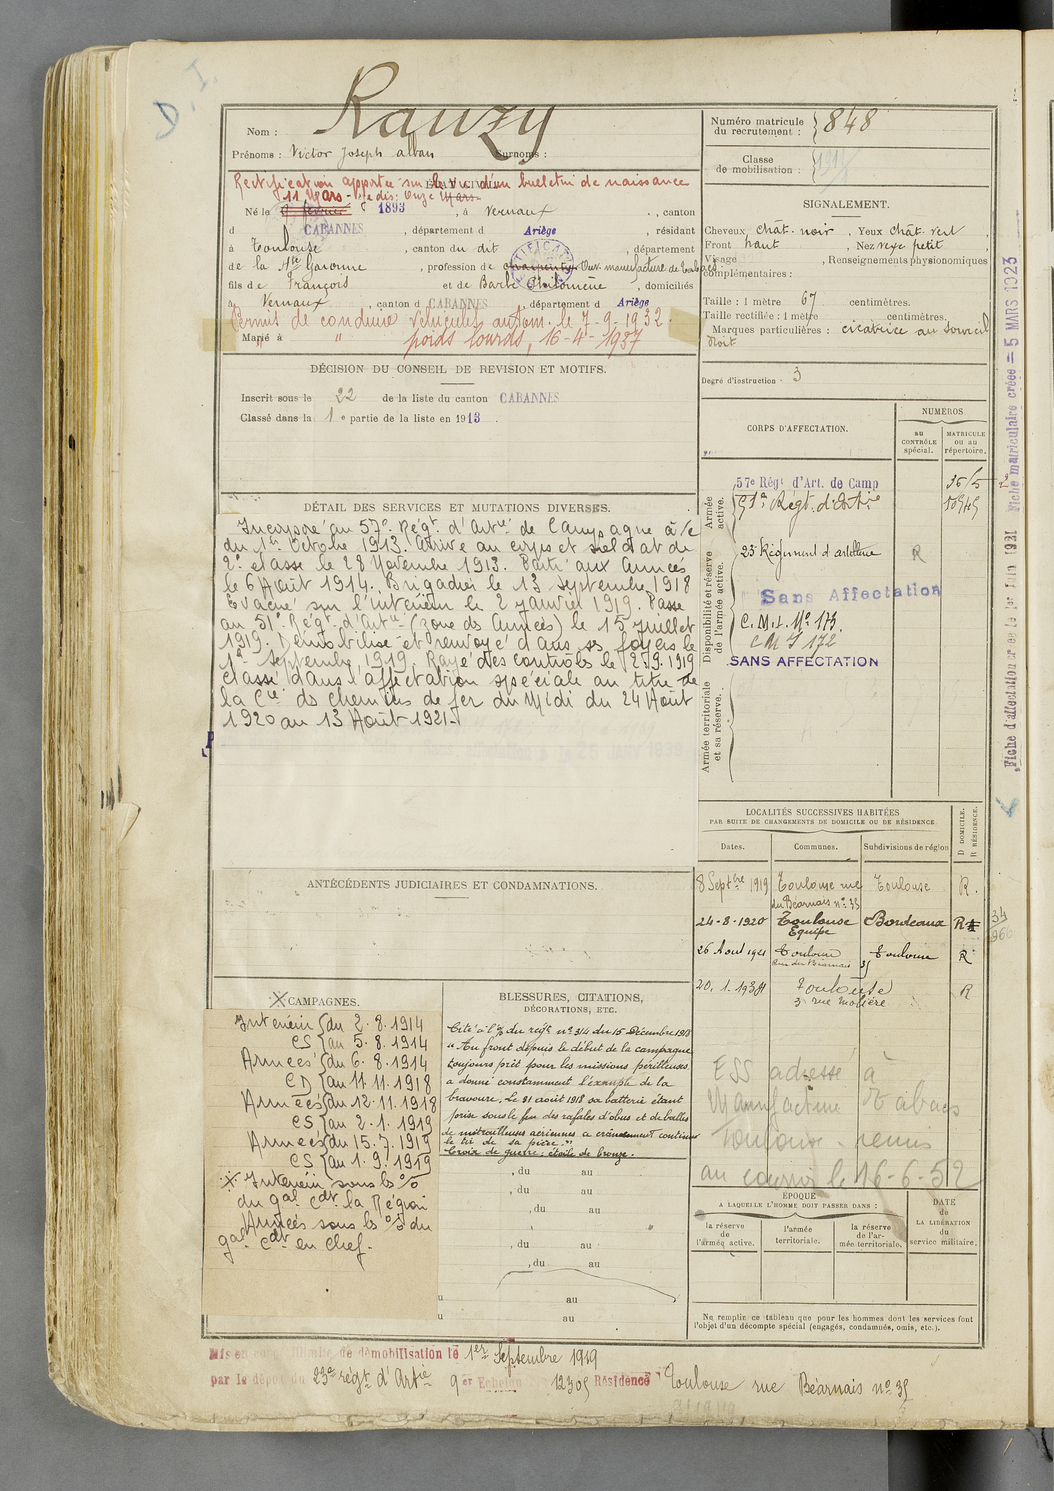 D. I.
Nom : Rauzy
Prénoms : Victor Joseph Alban Surnoms :
Numéro matricule du recrutement : 848
Classe de mobilisation :
ÉTAT CIVIL.
Rectification apportée sur le vu d'un bulletin de naissance
11 Mars - lire dis: Onze Mars
Né le 1893, à Vernaux, canton
d CABANNES, département d Ariège, résidant
à Toulouse, canton du dit, département
de la Hte Garonne, profession de charpentier Ouv. manufacture de Tabacs
fils de François et de Barbe Philomène, domiciliés
à Vernaux, canton d CABANNES, département d Ariège
Permis de conduire véhicules autom. le 7-9-1932.
Marié à " " poids lourds, 16-4-1937
SIGNALEMENT.
Cheveux chât. noir, Yeux chât. vert
Front haut, Nez petit
Visage , Renseignements physionomiques
complémentaires :
Taille : 1 mètre 67 centimètres.
Taille rectifiée : 1 mètre centimètres.
Marques particulières : cicatrice au sourcil
droit
Degré d'instruction : 3
DÉCISION DU CONSEIL DE REVISION ET MOTIFS.
Inscrit sous le 22 de la liste du canton CABANNES
Classé dans la 1e partie de la liste en 1913.
CORPS D'AFFECTATION.
NUMÉROS
au CONTRÔLE spécial.
MATRICULE ou au répertoire.
Armée active.
57e Régt d'Art. de Camp
51e Régt. d'Artie
Disponibilité et réserve de l'armée active.
23e Régiment d'artillerie R
Sans Affectation
C. M. I. No 173.
C M I 172
SANS AFFECTATION
Armée territoriale et sa réserve.
DÉTAIL DES SERVICES ET MUTATIONS DIVERSES.
Incorporé au 57e Régt d'Artie de Campagne à/c
du 1er Octobre 1913. Arrivé au corps et soldat de
2e classe le 28 Novembre 1913. Parti aux Armées
le 6 Août 1914. Brigadier le 13 septembre 1918
Evacué sur l'intérieur le 2 janvier 1919. Passé
au 51e Régt d'Artie (zone des Armées) le 15 juillet
1919. Démobilisé et renvoyé dans ses foyers le
1er septembre 1919. Rayé des contrôles le 2.9.1919
Classé dans l'affectation spéciale au titre de
la Cie des chemins de fer du Midi du 24 Août
1920 au 13 Août 1921.
LOCALITÉS SUCCESSIVES HABITÉES
PAR SUITE DE CHANGEMENTS DE DOMICILE OU DE RÉSIDENCE.
Dates. Communes. Subdivisions de région
D DOMICILE.
R RÉSIDENCE.
8 Septbre 1919 Toulouse rue Toulouse R.
du Béarnais no 35
24-8-1920 Toulouse Bordeaux R
Equipe
26 Aout 1921 Toulouse Toulouse R
Rue du Béarnais 35
20.1.1938 Toulouse R
3 rue Molière
ANTÉCÉDENTS JUDICIAIRES ET CONDAMNATIONS.
CAMPAGNES.
Intérieur du 2.8.1914
CS au 5.8.1914
Armées du 6.8.1914
CD au 11.11.1918
Armées du 12.11.1918
CS au 2.1.1919
Armées du 15.7.1919
CS au 1.9.1919
Intérieur sous ls %
du gal Cdt la Région
Armées sous ls % du
gal Cdt en chef.
BLESSURES, CITATIONS,
DÉCORATIONS, ETC.
Cité à l'% du régt no 314 du 15 Décembre 1918
"Au front depuis le début de la campagne
toujours prêt pour les missions périlleuses
a donné constamment l'exemple de la
bravoure. Le 31 août 1918 sa batterie étant
prise sous le feu des rafales d'obus et de balles
de mitrailleuses aériennes a crânement continué
le tir de sa pièce."
Croix de guerre ; étoile de bronze.
, du au
, du au
, du au
, du au
, du au
u au
u au
ESS adressé à
Manufacture Tabacs
Toulouse. remis
au courrier le 16-6-52
ÉPOQUE
A LAQUELLE L'HOMME DOIT PASSER DANS :
la réserve de l'armée active.
l'armée territoriale.
la réserve de l'armée territoriale.
DATE de LA LIBÉRATION du service militaire.
Ne remplir ce tableau que pour les hommes dont les services font
l'objet d'un décompte spécial (engagés, condamnés, omis, etc.).
Mis en illimité de démobilisation le 1er Septembre 1919
par le dépôt du 23e régt d'Artie 9er Echelon 12305 Résidence Toulouse rue Béarnais no 35
Fiche d'affectation créée le 1er Juin 1921 Fiche matriculaire créée = 5 MARS 1923